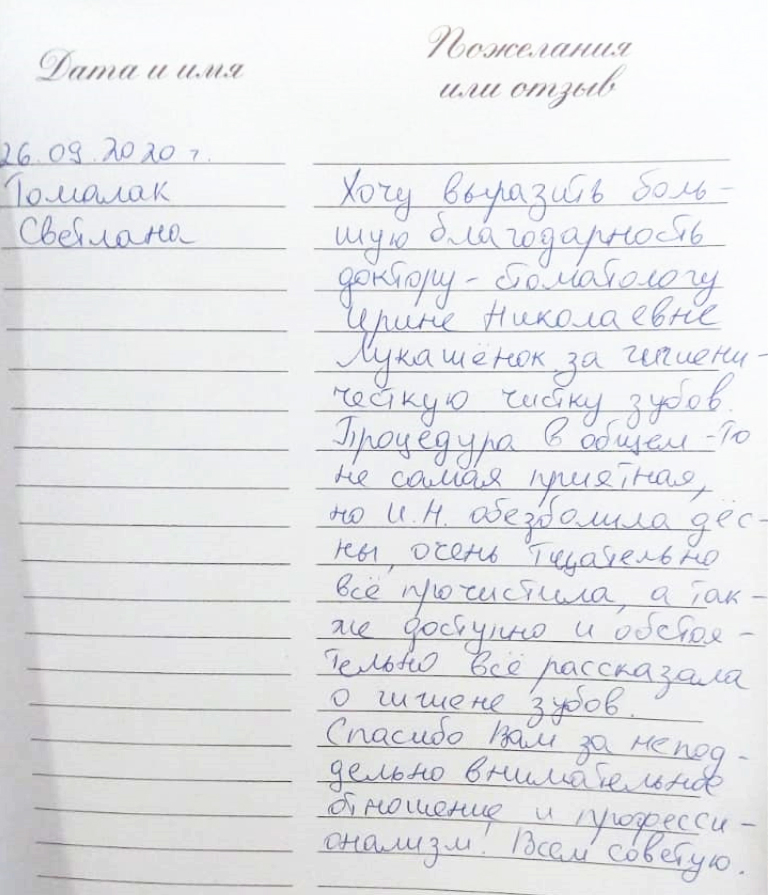 Дата и имя
Пожелания
или отзыв
26.09.2020 г.
Томалак
Светлана
Хочу выразить боль-
шую благодарность
доктору-стоматологу
Ирине Николаевне
Лукашёнок за гигиени-
ческую чистку зубов.
Процедура в общем-то
не самая приятная,
но И.Н. обезболила дёс-
ны, очень тщательно
всё прочистила, а так-
же доступно и обстоя-
тельно всё рассказала
о гигиене зубов.
Спасибо Вам за непод-
дельно внимательное
отношение и професси-
онализм! Всем советую.